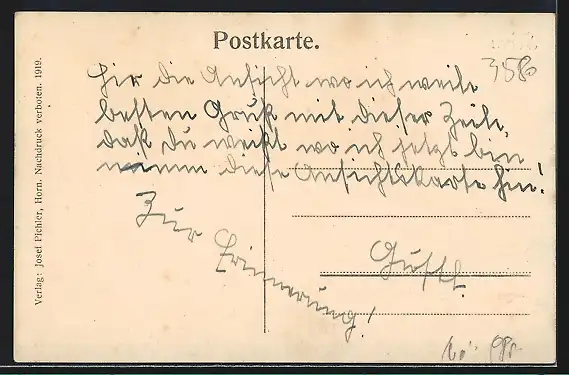 Postkarte.
358
Hir die Ansicht wo ich weile
besten Gruß mit dieser Zeile,
daß du weißt wo ich jetzt bin
nimm diese Ansichtskarte hin!
Zur Erinnerung!
Gustl.
Verlag: Josef Pichler, Horn. Nachdruck verboten. 1919.